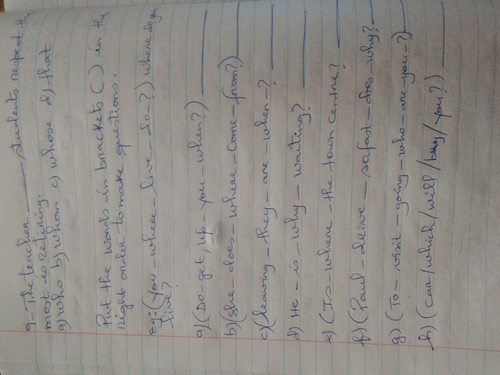 9- The teacher ______ students respect the
most is retiring.
a) who b) whom c) whose d) that
Put the words in brackets ( ) in the
right order to make questions.
eg: (You - where - live - do - ?) where do you
live?
a) (Do - get, up - you - when?) ______
b) (She - does - where - come - from?) ______
c) (leaving - they - are - when - ?) ______
d) He - is - why - waiting? ______
e) (Is - where - the town centre? ______
f) (Paul - drive - so fast - does - why? ______
g) (To - visit - going - who - are you - ?) ______
h) (car / which / will / buy / you?) ______